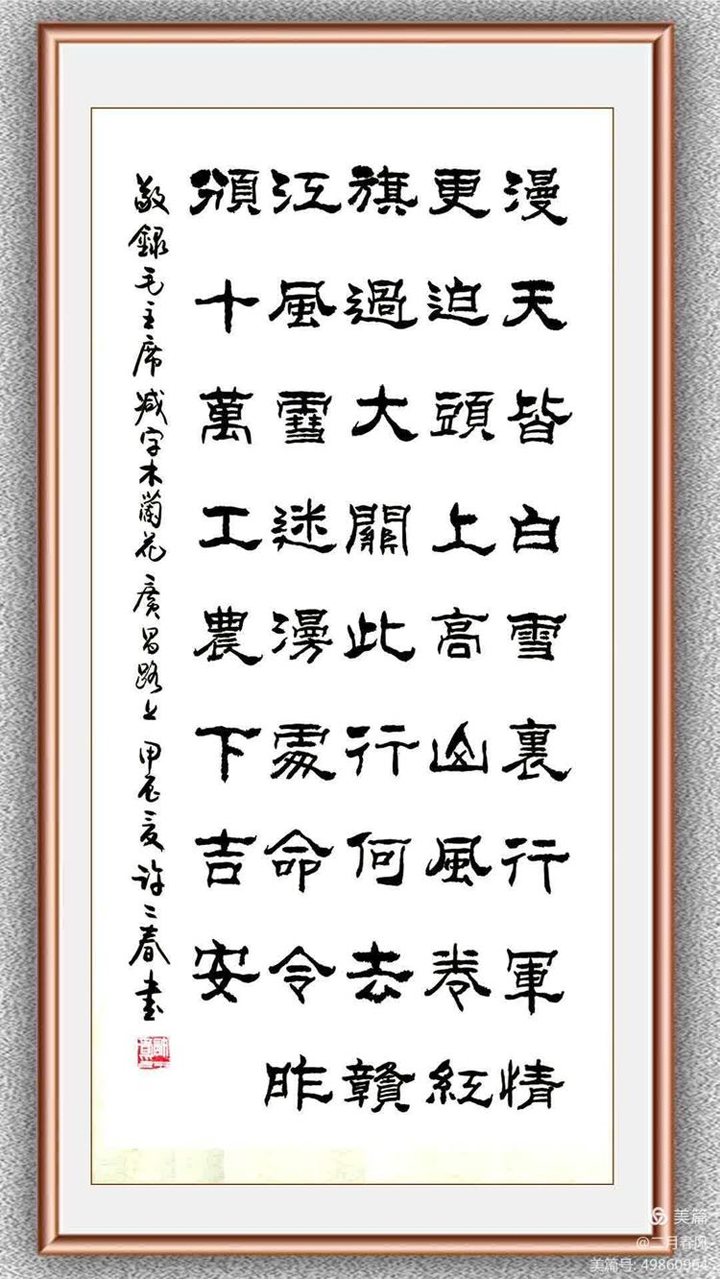 漫天皆白雪裏行軍情
更迫頭上高山風卷紅
旗過大關此行何去贛
江風雪迷漫處命令昨
頒十萬工農下吉安
敬錄毛主席减字木蘭花廣昌路上 甲辰夏許二春書
美篇
@二月春风
美篇号: